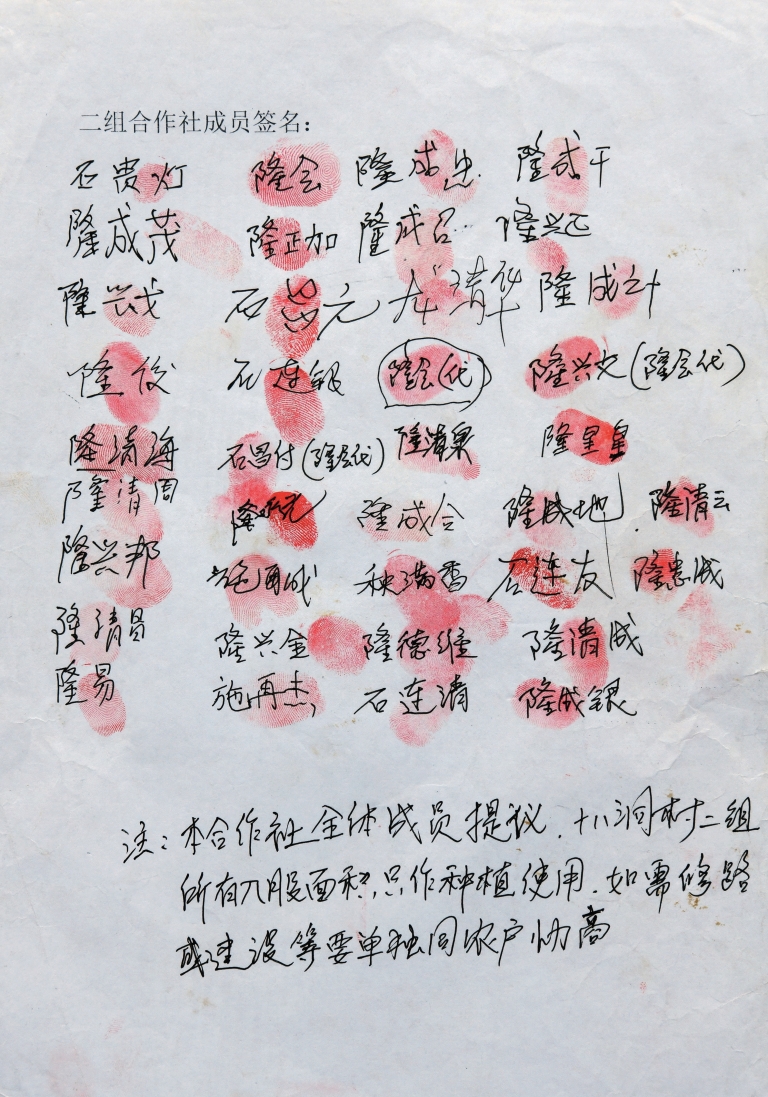 二组合作社成员签名：
石贵灯 隆会 隆成忠 隆成干
隆成茂 隆正加 隆成吕 隆兴正
隆兴成 石兴元 龙清华 隆成计
隆俊 石连银 隆会(代) 隆兴史(隆会代)
隆清海 石昌付(隆会代) 隆清 隆星星
隆清周 隆成合 隆成地 隆清云
隆兴邦 施再成 秧满香 石连友 隆忠成
隆清昌 隆兴金 隆德维 隆清成
隆易 施再杰 石连清 隆成银
注：本合作社全体成员提议，十八洞村二组
所有入股面积，只作种植使用，如需修路
或建设等要单独同农户协商